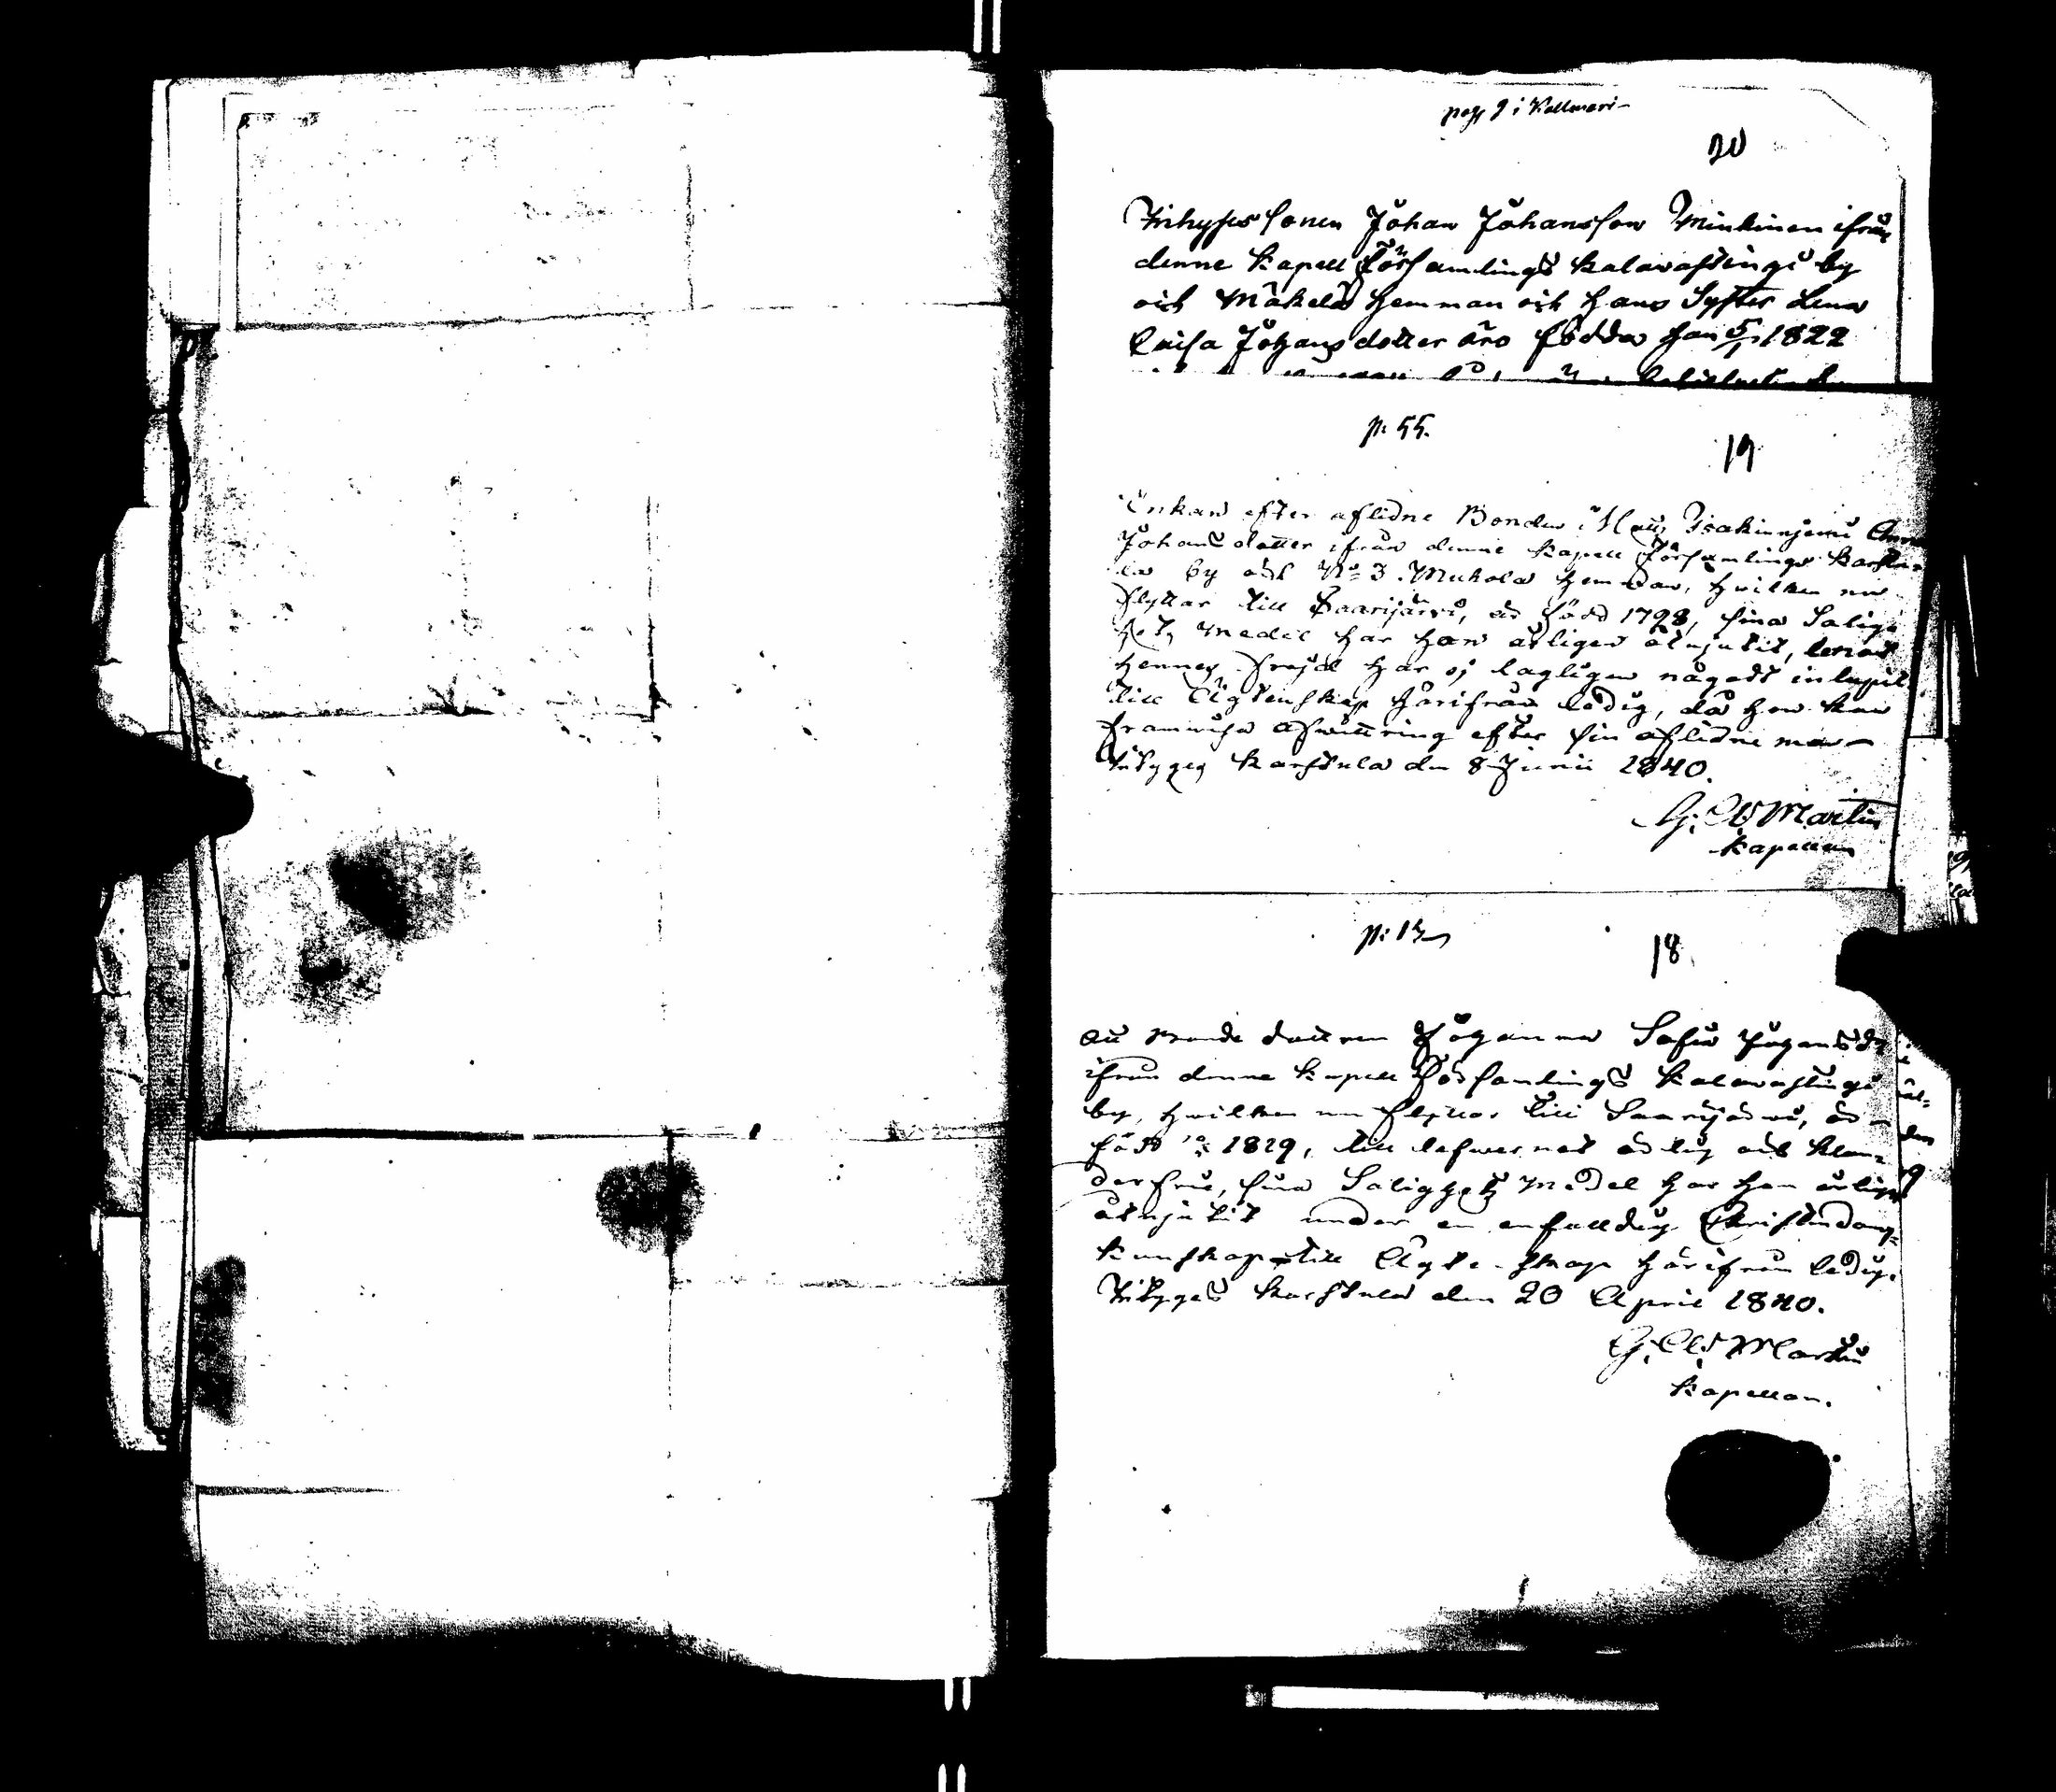 pag 9 i Kallmari
20
Inhyses sonen Johan Johansson Minkinen ifrån
denne Kapell Församlings Kalavastinge by
och Mäkelä Hemman och hans Syster Lena
Caisa Johansdotter äro födda han 5/1 1822
p: 55.
19
Enkan efter aflidne Bonden Isakinnjemi Anna
Johansdotter ifrån denne Kapell Församlings Karstu-
la by och No 3. Mukola Hemman, hvilken nu
flyttar till Saarijärvi, är född 1798, sina Salig-
hets Medel har hon årligen åtnjutit, emot
hennes frejd har ej lagligen någodt inlupit
till Ägtenskap härifrån ledig, då hon kan
framvisa afwittring efter sin aflidne man
Intygas Karstula den 8 Junii 1840.
G: W: Martin
Kapellan
p: 13
18
Bonde dottren Johanna Sofia Johansdr
ifrån denne Kapell Församlings Kalavastinge
by, hvilken nu flyttar till Saarijärvi, är
född 1819, till lefvernet ärlig och klan-
derfrie, sina Salighets Medel har hon årligen
åtnjutit under en enfaldig Christendoms-
kunskap till Ägtenskap härifrån ledig.
Intygas Karstula den 20 April 1840.
G: W: Martin
Kapellan.